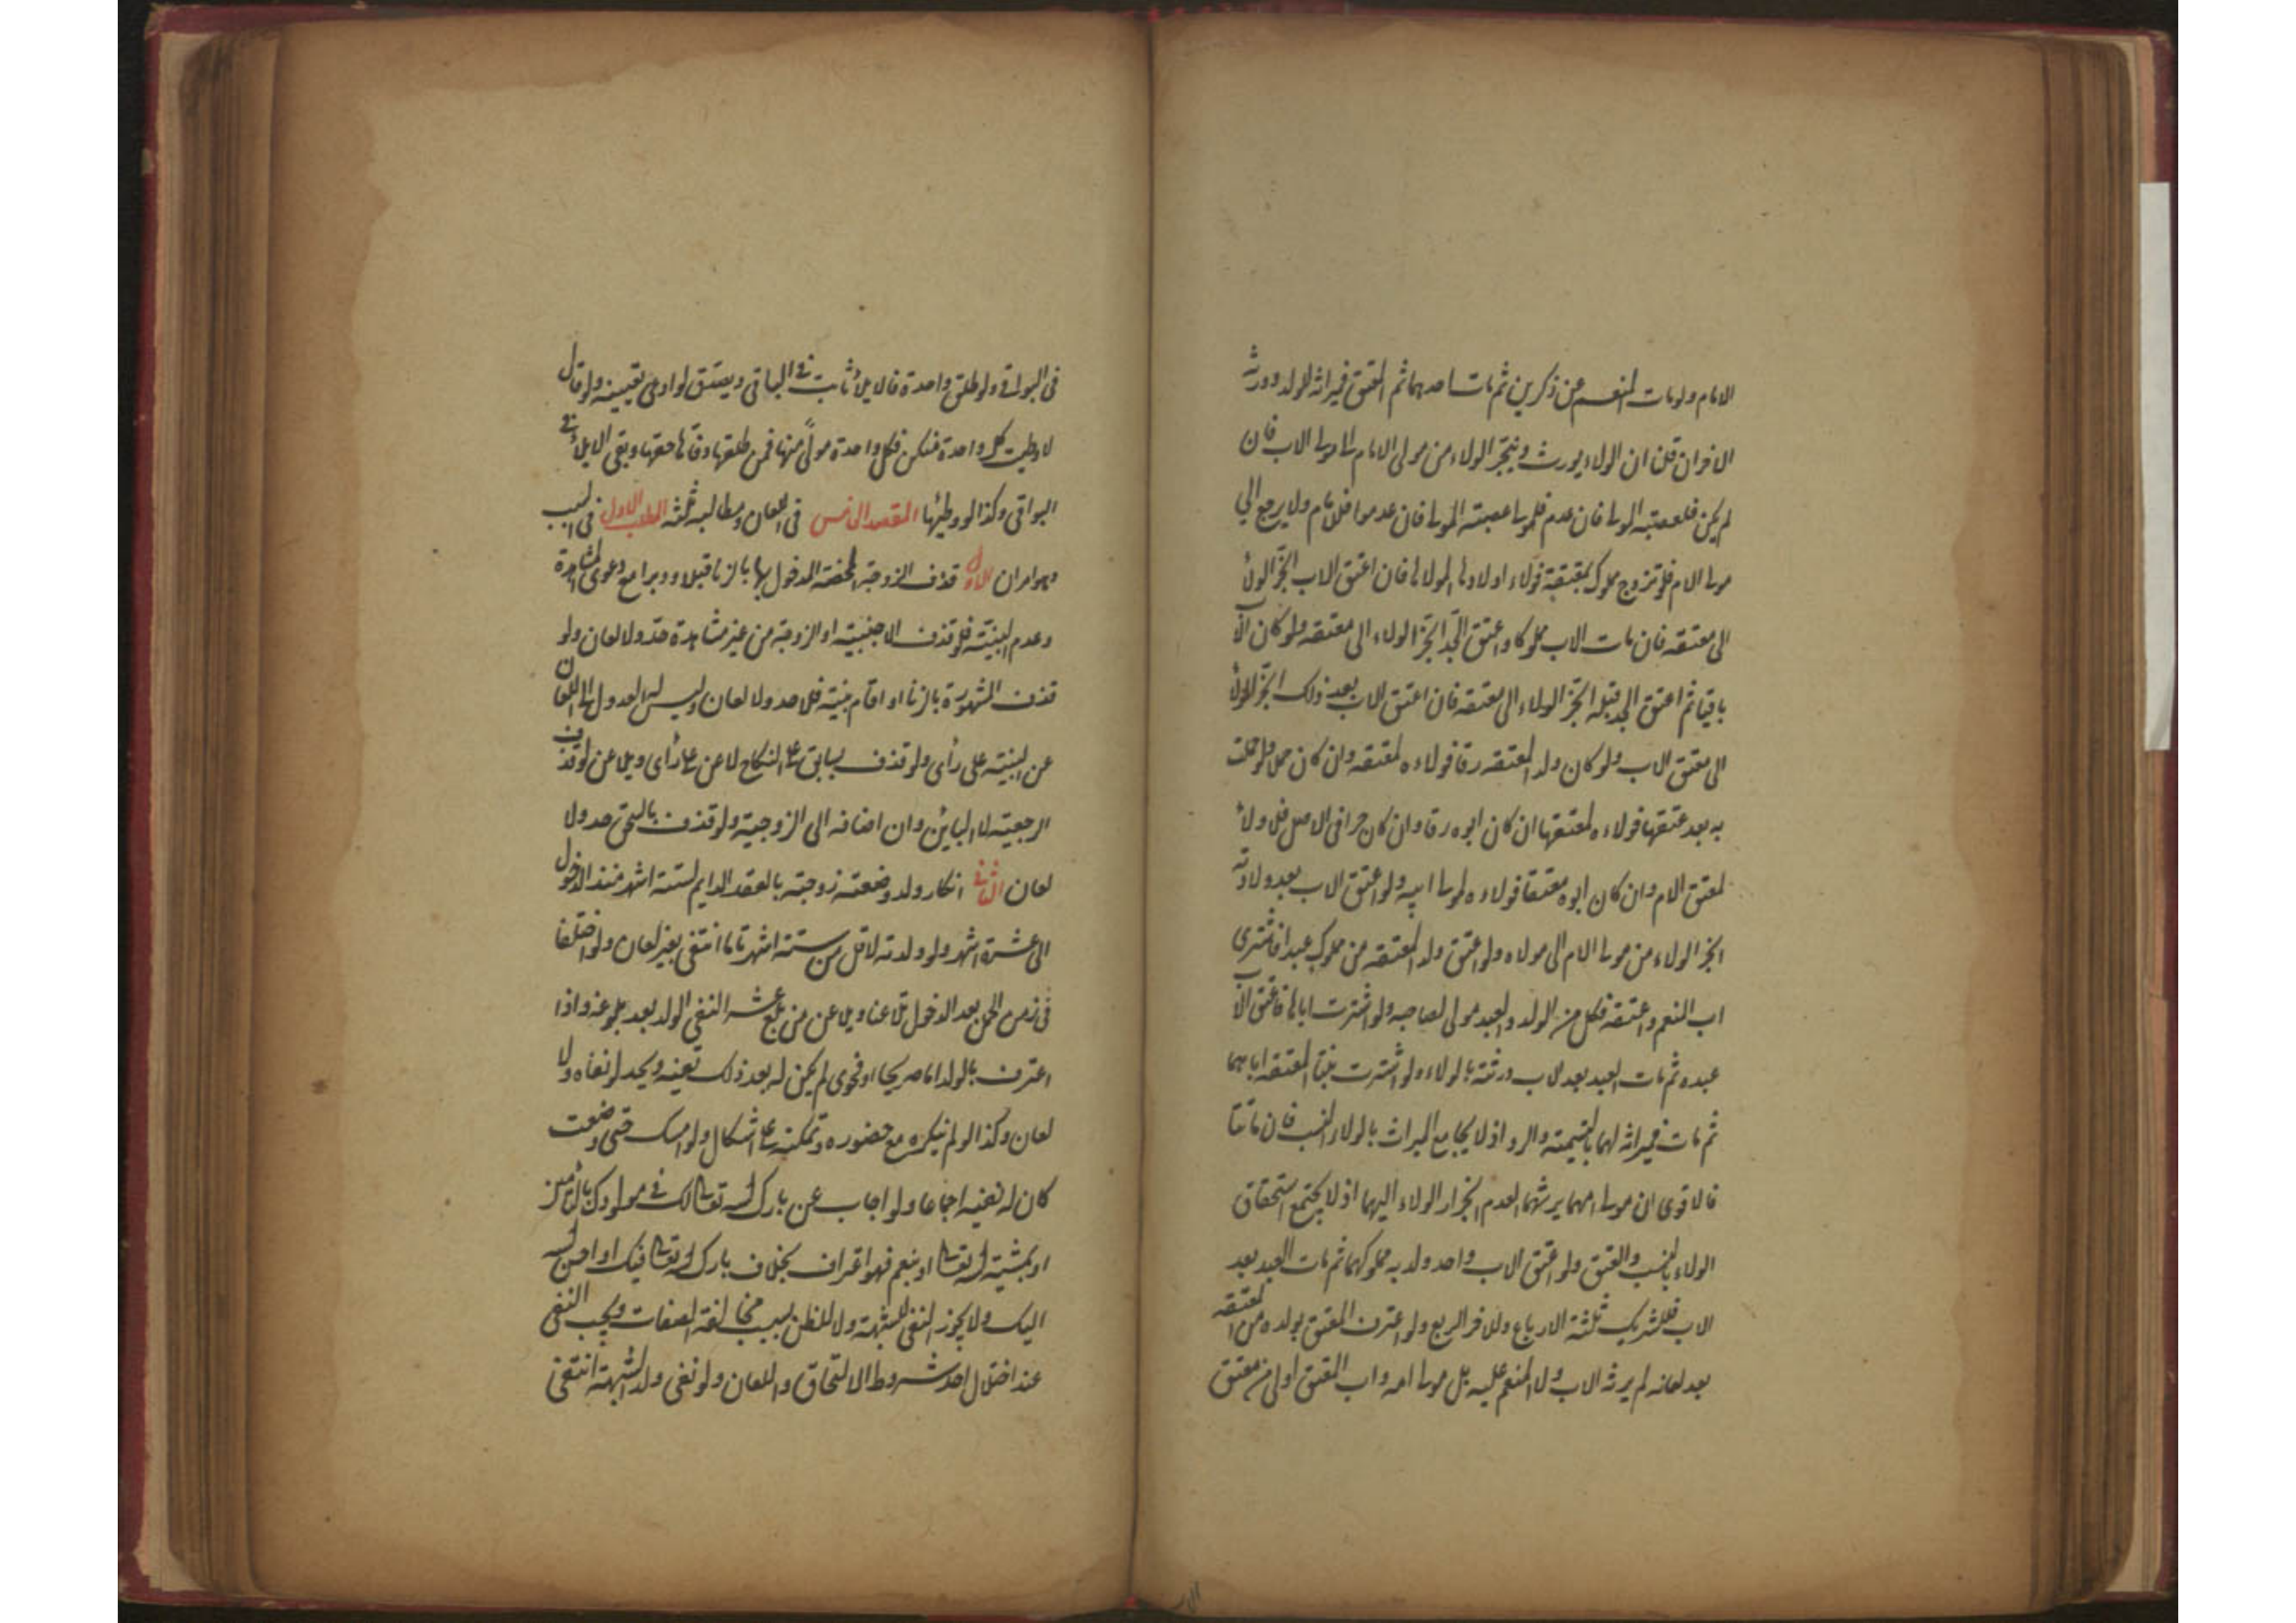 الامام ولو مات المنعم عن ذكرين ثم مات احدهما ثم المعتق فميراثه للولد وورثة
الاخر ان قلنا ان الولاء يورث وينجر الولاء من مولى الام الى مولى الاب فان
لم يكن فلعصبة المولى فان عدم فلمولى عصبة المولى فان عدموا فللامام ولا يرجع الي
مولى الام فلو تزوج مملوك بمعتقة فولاء اولادها لمولاها فان اعتق الاب انجر الولاء
الى معتقه فان مات الاب مملوكا واعتق الجد انجر الولاء الى معتقه ولو كان الاب
باقيا ثم اعتق الجد قبله انجر الولاء الى معتقه فان اعتق الاب بعد ذلك انجر الولاء
الى معتق الاب ولو كان ولد المعتقه رقا فولاءه لمعتقه وان كان حملا ولو حملت
به بعد عتقها فولاءه لمعتقها ان كان ابوه رقا وان كان حرا فى الاصل فلا ولاء
لمعتق الام وان كان ابوه معتقا فولاءه لمولى ابيه ولو اعتق الاب بعد ولادته
انجر الولاء من مولى الام الى مولاه ولو اعتق ولد المعتقه من مملوك عبدا فاشترى
اب المنعم واعتقه فكل من الولد والعبد مولى لصاحبه ولو اشترت اباها فاعتق الاب
عبده ثم مات العبد بعد الاب ورثته بالولاء ولو اشترت بنتا المعتقه اباهما
ثم مات فميراثه لهما بالتسمية والرد اذ لا يجامع الميراث بالولاء النسب فان ماتتا
فالاقوى ان مولى امهما يرثهما لعدم انجرار الولاء اليهما اذ لا يجتمع استحقاق
الولاء بالنسب والعتق ولو اعتق الاب واحد ولديه مملوكهما ثم مات العبد بعد
الاب فللشريك ثلثة الارباع وللاخر الربع ولو اعترف المعتق بولده من المعتقه
بعد لعانه لم يرثه الاب ولا المنعم عليه بل مولى امه واب المعتق اولى من معتق
فى البواقى ولو طلق واحدة فالايلاء ثابت فى الباقى ويصدق لو ادعى تعيينه ولو قال
لا وطيت كل واحدة منكن فكل واحدة مولى منها فمن طلقها وفاها حقها وبقى الايلاء فى
البواقى وكذا لو وطئها المقصد الخامس فى اللعان ومطالبه ثلثه المطلب الاول فى السبب
وهو امران الاول قذف الزوجة المحصنة المدخول بها بالزنا قبلا ودبرا مع دعوى المشاهدة
وعدم البينة فلو قذف الاجنبية او الزوجة من غير مشاهدة حد ولا لعان ولو
قذف المشهورة بالزنا او اقام بينة فلا حد ولا لعان وليس له العدول الى اللعان
عن البينة على رأى ولو قذف بسابق على النكاح لاعن على رأى ويلاعن لو قذف
الرجعية لا البائن وان اضافه الى الزوجية ولو قذف بالسحق حد ولا
لعان الثانى انكار ولد وضعته زوجته بالعقد الدايم لستة اشهر منذ الدخول
الى عشرة اشهر ولو ولدته لاقل من ستة اشهر تاما انتفى بغير لعان ولو اختلفا
فى زمن الحمل بعد الدخول تلاعنا ويلاعن من بلغ عشرا لنفى الولد بعد بلوغه واذا
اعترف بالولد اما صريحا او فحوى لم يكن له بعد ذلك نفيه ويحد لو نفاه ولا
لعان وكذا لو لم ينكره مع حضوره وتمكنه على اشكال ولو امسك حتى وضعت
كان له نفيه اجماعا ولو اجاب عن بارك الله تعالى لك فى مولودك بآمين
او بمشية الله تعالى او بنعم فهو اعتراف بخلاف بارك الله تعالى فيك او احسن الله
اليك ولا يجوز النفى للشبهة ولا للظن بسبب مخالفة الصفات ويجب النفى
عند اختلال احد شروط الالتحاق واللعان ولو نفى ولد الشبهة انتفى